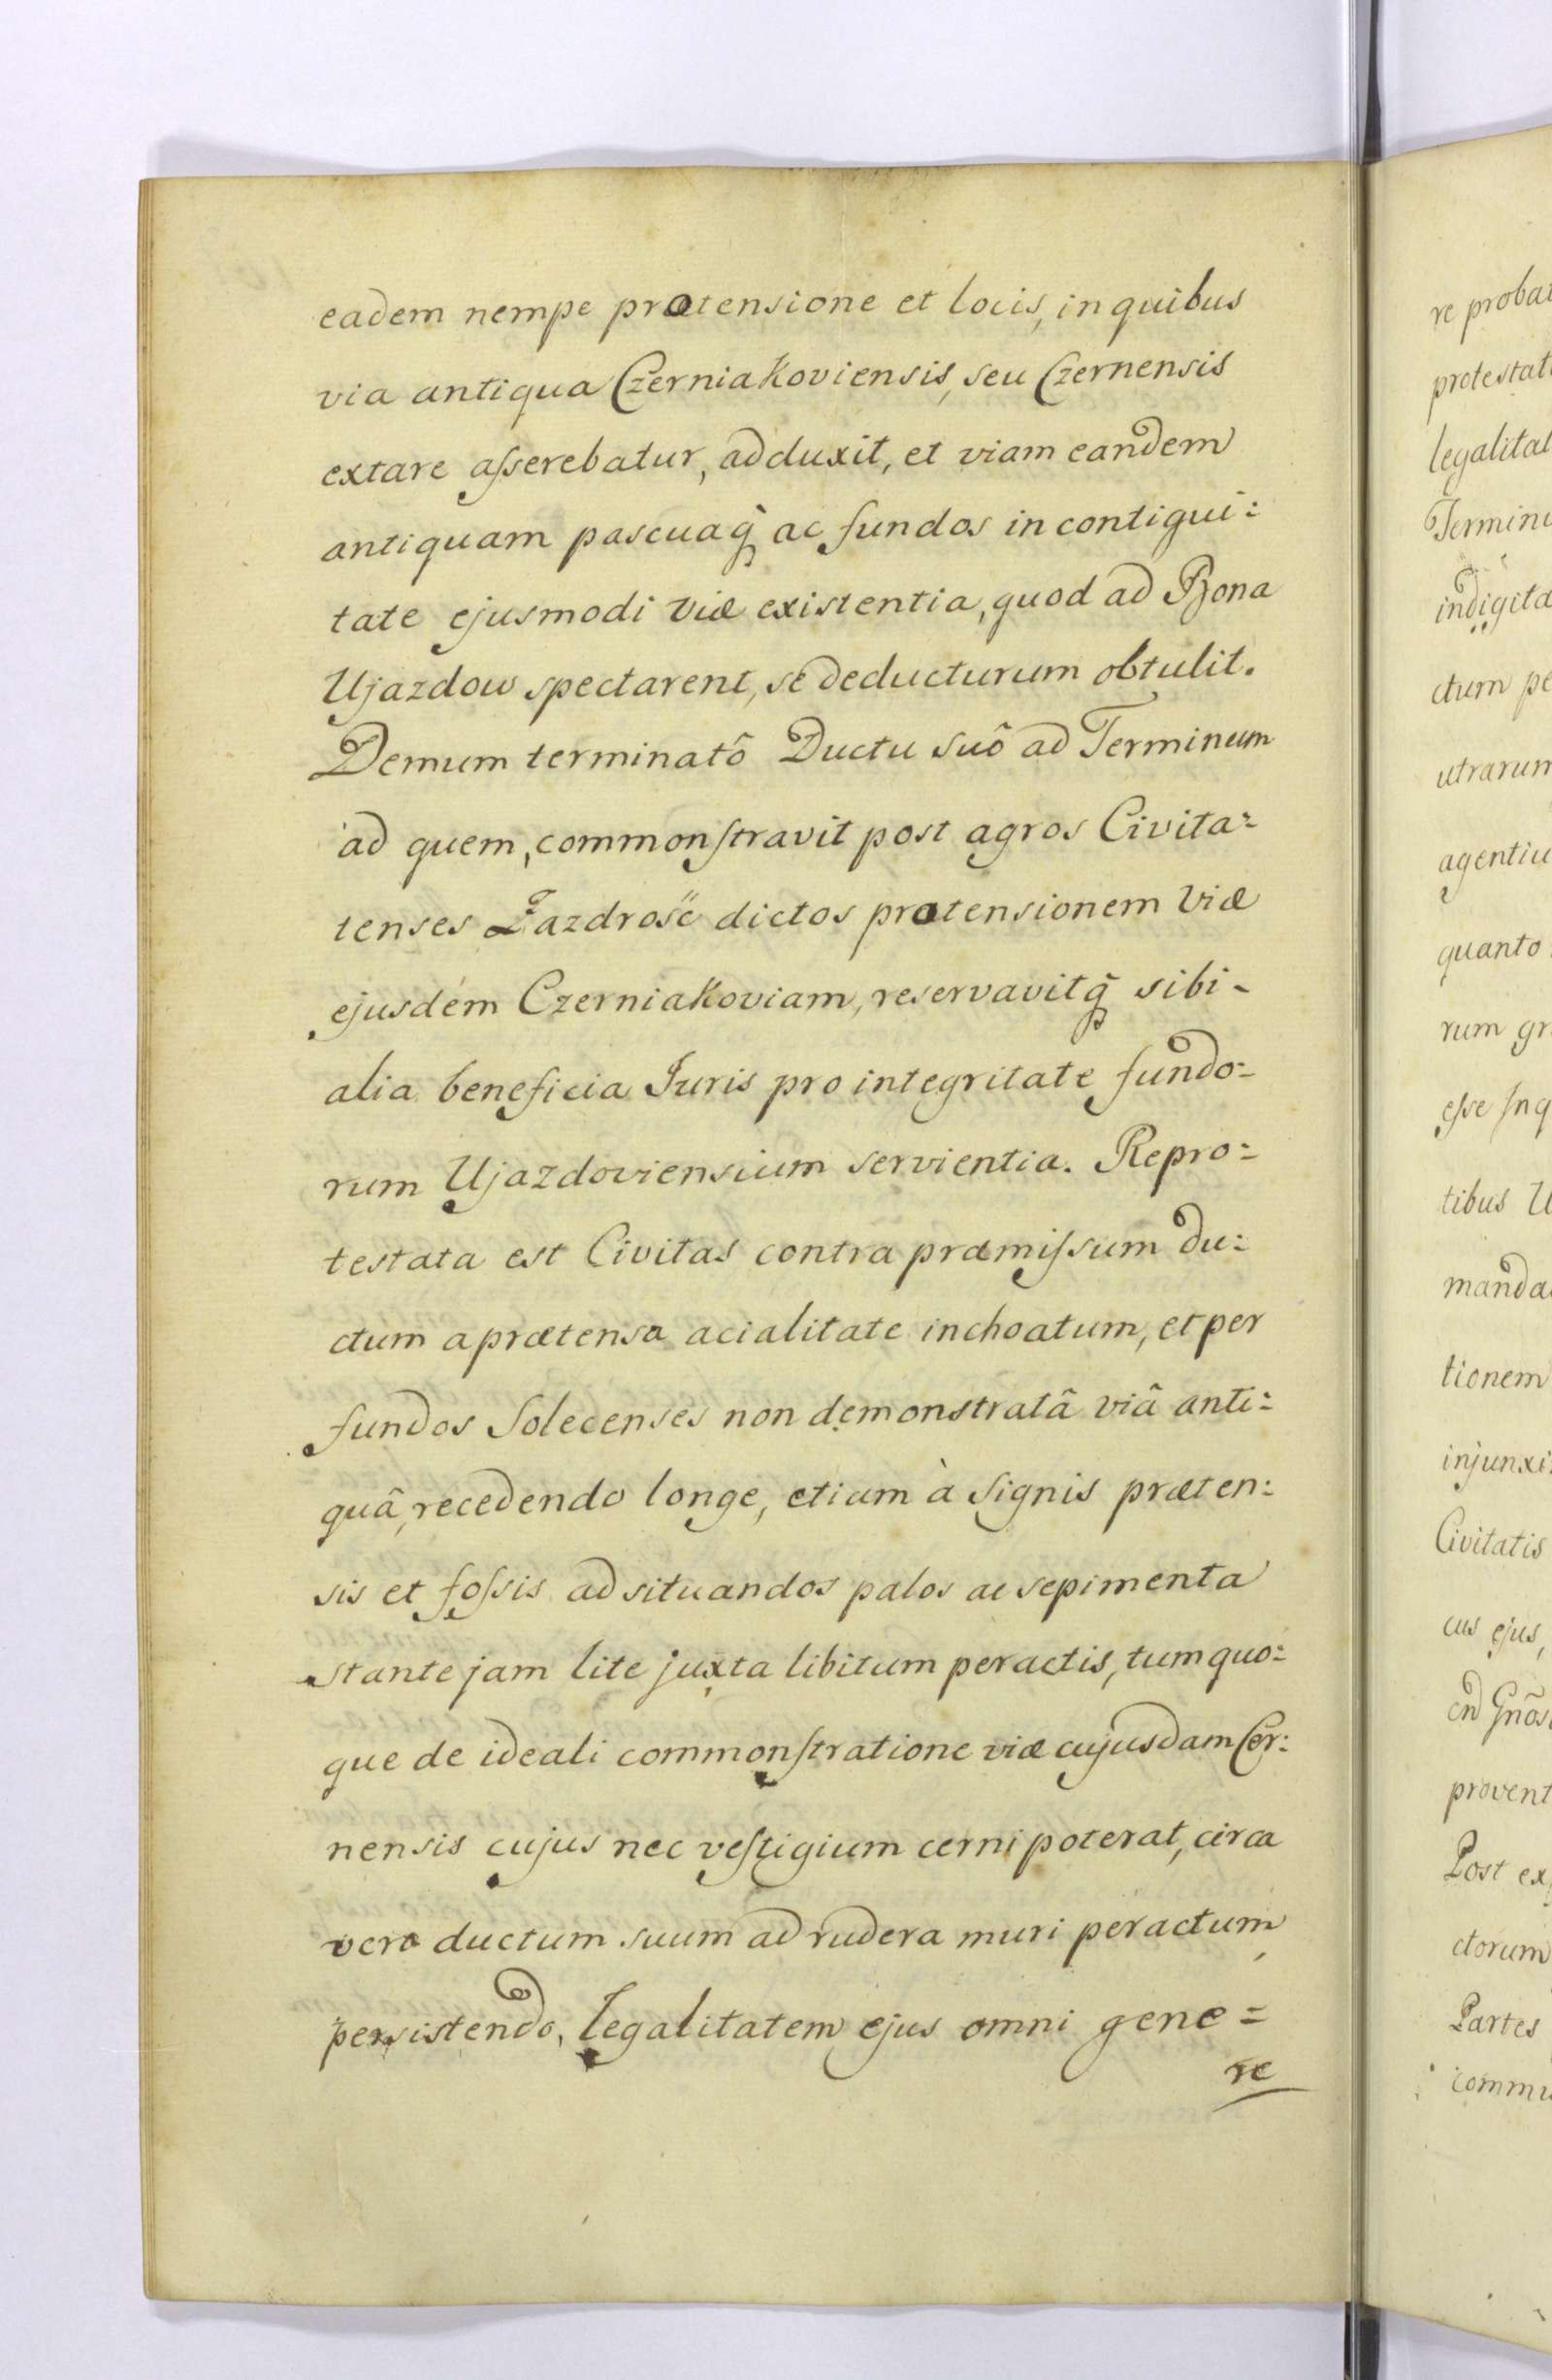 eadem nempe prætensione et locis, in quibus
via antiqua Czerniakoviensis, seu Czernensis
extare aſserebatur, adduxit, et viam eandem
antiquam pascuaq̃ ac fundos in contigui:
tate ejusmodi viæ existentia, quod ad Bona
Ujazdow spectarent, se deducturum obtulit.
Demum terminatô Ductu suô ad Terminum
ad quem, commonſtravit post agros Civita:
tenses Zazdrość dictos prætensionem viæ
ejusdem Czerniakoviam, reservavitq̃ sibi-
alia beneficia Iuris pro integritate fundo:
rum Ujazdoviensium servientia. Repro:
testata est Civitas contra præmiſsum du:
ctum a prætensa acialitate inchoatum, et per
fundos Solecenses non demonstratâ viâ anti:
quâ, recedendo longe, etiam à signis præten:
sis et foſsis ad situandos palos ac sepimenta
stante jam lite juxta libitum peractis, tum quo:
que de ideali commonſtratione viæ cujusdam Cer:
nensis cujus nec veſtigium cerni poterat, circa
vero ductum suum ad rudera muri peractum
persistendo, legalitatem ejus omni gene=
re
re proba
protestat
legalitat
Termin
indigita
ctum pe
utrarum
agentiu
quanto
rum gr
eſse Inq
tibus U
manda
tionem
injunxi
Civitatis
cus ejus,
cñ Gnos
provent
Post ex
ctorum
Partes
commu